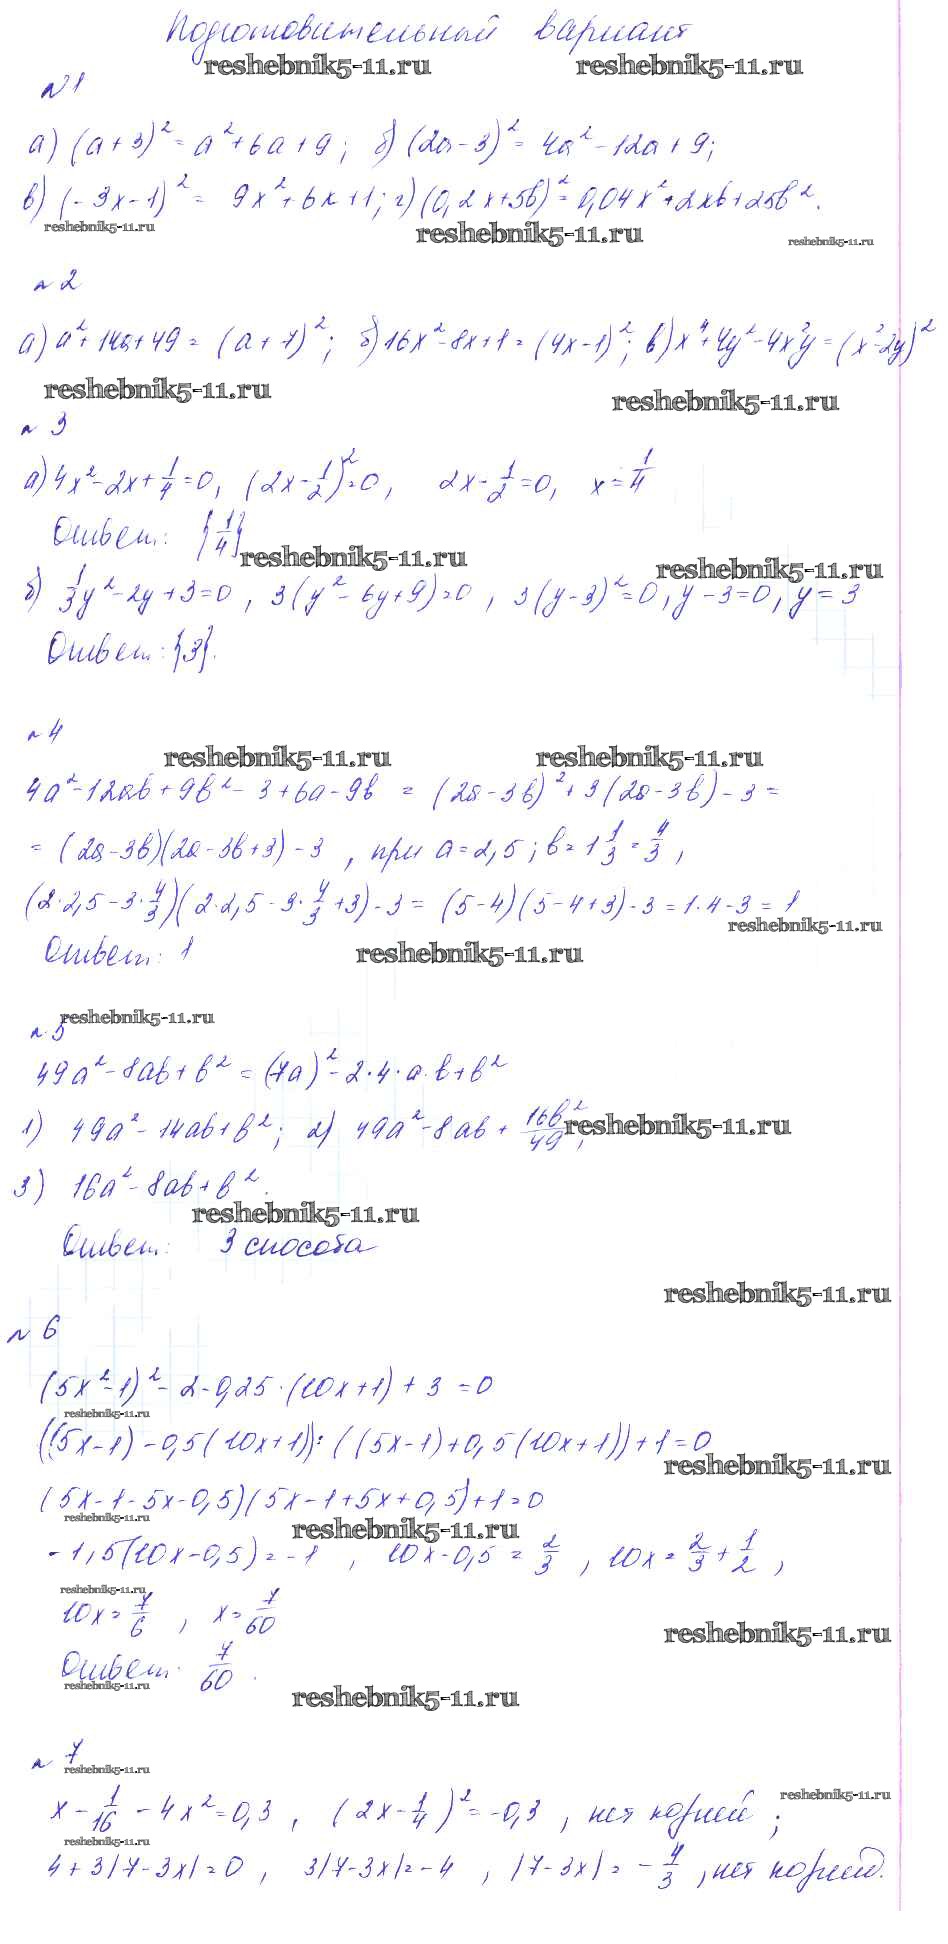 Подготовительный вариант
reshebnik5-11.ru reshebnik5-11.ru
№1
а) (a+3)² = a²+6a+9; б) (2a-3)² = 4a²-12a+9;
в) (-3x-1)² = 9x²+6x+1; г) (0,2x+5b)² = 0,04x²+2xb+25b².
reshebnik5-11.ru reshebnik5-11.ru reshebnik5-11.ru
№2
а) a²+14a+49 = (a+7)²; б) 16x²-8x+1 = (4x-1)²; в) x⁴+4y²-4x²y = (x²-2y)²
reshebnik5-11.ru reshebnik5-11.ru
№3
а) 4x²-2x+1/4=0, (2x-1/2)²=0, 2x-1/2=0, x=1/4
Ответ: {1/4}
reshebnik5-11.ru reshebnik5-11.ru
б) 1/3y²-2y+3=0, 3(y²-6y+9)=0, 3(y-3)²=0, y-3=0, y=3
Ответ: {3}.
№4
reshebnik5-11.ru reshebnik5-11.ru
4a²-12ab+9b²-3+6a-9b = (2a-3b)²+3(2a-3b)-3=
= (2a-3b)(2a-3b+3)-3, при a=2,5; b=1 1/3=4/3,
(2·2,5-3·4/3)(2·2,5-3·4/3+3)-3 = (5-4)(5-4+3)-3=1·4-3=1
reshebnik5-11.ru
Ответ: 1 reshebnik5-11.ru
reshebnik5-11.ru
№5
49a²-8ab+b² = (7a)²-2·4·a·b+b²
1) 49a²-14ab+b²; 2) 49a²-8ab+16b²/49; reshebnik5-11.ru
3) 16a²-8ab+b².
reshebnik5-11.ru
Ответ: 3 способа
reshebnik5-11.ru
№6
(5x²-1)²-2-0,25·(10x+1)+3=0
reshebnik5-11.ru
((5x-1)-0,5(10x+1))·((5x-1)+0,5(10x+1))+1=0
reshebnik5-11.ru
(5x-1-5x-0,5)(5x-1+5x+0,5)+1=0
reshebnik5-11.ru reshebnik5-11.ru
-1,5(10x-0,5)=-1, 10x-0,5=2/3, 10x=2/3+1/2,
reshebnik5-11.ru
10x=7/6, x=7/60
reshebnik5-11.ru
Ответ: 7/60.
reshebnik5-11.ru reshebnik5-11.ru
№7
reshebnik5-11.ru reshebnik5-11.ru
x-1/16-4x²=0,3, (2x-1/4)²=-0,3, нет корней;
reshebnik5-11.ru
4+3|7-3x|=0, 3|7-3x|=-4, |7-3x|=-4/3, нет корней.